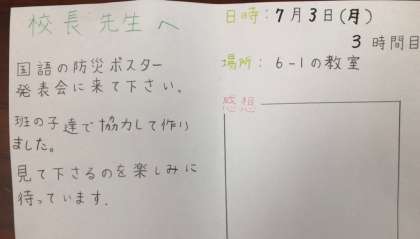 校長先生へ
国語の防災ポスター
発表会に来て下さい。
班の子達で協力して作り
ました。
見て下さるのを楽しみに
待っています.
日時:7月3日(月)
3時間目
場所:6-1の教室
感想